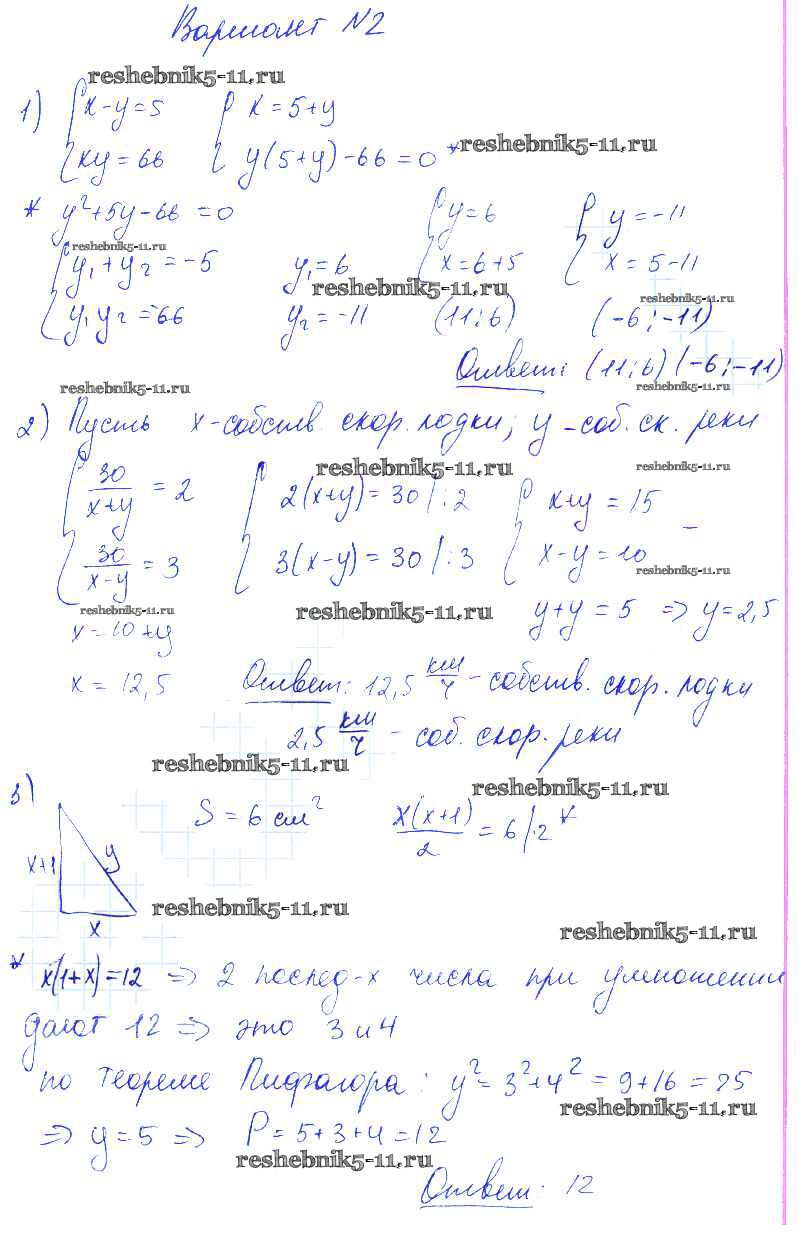 Вариант №2
reshebnik5-11.ru
1) { x-y=5 { x=5+y
xy=66 y(5+y)-66=0 * reshebnik5-11.ru
* y²+5y-66=0 { y=6 { y=-11
reshebnik5-11.ru
{ y₁+y₂=-5 y₁=6 x=6+5 x=5-11
reshebnik5-11.ru reshebnik5-11.ru
y₁y₂=-66 y₂=-11 (11;6) (-6;-11)
Ответ: (11;6) (-6;-11)
reshebnik5-11.ru reshebnik5-11.ru
2) Пусть x-собств. скор. лодки; y-соб. ск. реки
reshebnik5-11.ru reshebnik5-11.ru
{ 30/(x+y) = 2 { 2(x+y)=30 /:2 { x+y=15
30/(x-y) = 3 3(x-y)=30 /:3 x-y=10 −
reshebnik5-11.ru
reshebnik5-11.ru reshebnik5-11.ru y+y=5 => y=2,5
x=10+y
x=12,5 Ответ: 12,5 км/ч - собств. скор. лодки
2,5 км/ч - соб. скор. реки
reshebnik5-11.ru reshebnik5-11.ru
3) S=6 см² x(x+1)/2 = 6 /·2 *
x+1 y
x
reshebnik5-11.ru reshebnik5-11.ru
* x(1+x)=12 => 2 послед-х числа при умножении
дают 12 => это 3 и 4
по теореме Пифагора: y²=3²+4²=9+16=25
reshebnik5-11.ru
=> y=5 => P=5+3+4=12
reshebnik5-11.ru
Ответ: 12